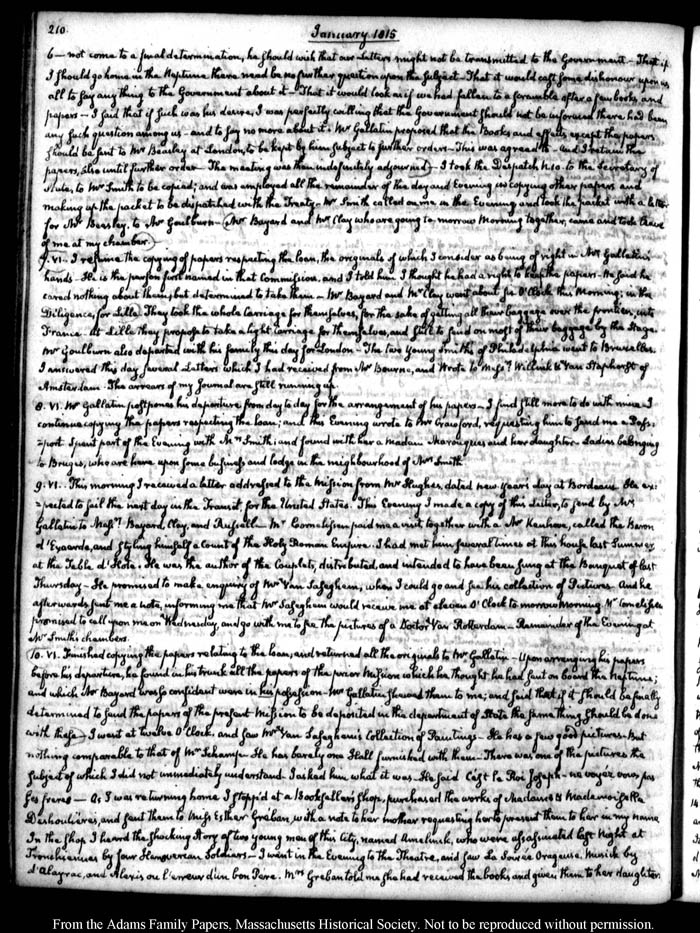 210.
January 1815
6 — not come to a final determination, he should wish that our Letters might not be transmitted to the Government — That if
I should go home in the Neptune there need be no further question upon the subject — That it would cast some dishonour upon us
all to say any thing to the Government about it — That it would look as if we had fallen to a scramble after a few books and
papers — I said that if such was his desire, I was perfectly willing that the Government should not be informed there had been
any such question among us — and to say no more about it. Mr Gallatin proposed that the Books and effects except the papers
should be sent to Mr Beasley at London, to be kept by him subject to further orders — This was agreed to — and I retain the
papers, also until further order — The meeting was then indefinitely adjourned — I took the Despatch N. 10. to the Secretary of
State, to Mr Smith to be copied; and was employed all the remainder of the day and Evening in copying other papers and
making up the packet to be dispatched with the Treaty — Mr Smith called on me in the Evening and took the packet with a letter
for Mr Beasley, to Mr Goulburn — Mr Bayard and Mr Clay who are going to-morrow Morning together, came and took leave
of me at my chamber.
7. VI. I resume the copying of papers respecting the loan, the originals of which I consider as being of right in Mr Gallatin's
hands — He is the person first named in that Commission, and I told him I thought he had a right to keep the papers — He said he
cared nothing about them, but determined to take them — Mr Bayard and Mr Clay went about O'Clock this Morning; in the
Diligence, for Lille. They took the whole Carriage for themselves, for the sake of getting all their baggage over the frontier, into
France. At Lille they propose to take a light Carriage for themselves, and still to send on most of their baggage by the Stage.
Mr Goulburn also departed with his family this day for London — The two young Smiths of Philadelphia went to Bruxelles.
I answered this day several Letters which I had received from Mr Bourne, and Wrote to Messrs Willink & Van Staphorst of
Amsterdam. The arrears of my Journal are still running up.
8. VI. Mr Gallatin postpones his departure from day to day for the arrangement of his papers — I find still more to do with mine. I
continue copying the papers respecting the loan; and this Evening wrote to Mr Crawford, requesting him to send me a Pass-
-port. Spent part of the Evening with Mrs Smith; and found with her a Madam Marouquies and her daughter. Ladies belonging
to Bruges, who are here upon some business and lodge in the neighbourhood of Mrs Smith.
9. VI. This morning I received a letter addressed to the Mission from Mr Hughes, dated new years day at Bordeaux. He ex-
-pected to sail the next day in the Transit for the United States. This Evening I made a copy of this Letter, to send by Mr
Gallatin to Messrs Bayard, Clay, and Russell — Mr Cornelissen paid me a visit together with a Mr Kenhove, called the Baron
d'Exaerde, and styling himself a Count of the Holy Roman Empire. I had met him several times at this house last Summer
at the Table d'Hote. He was the author of the Couplets, distributed, and intended to have been sung at the Banquet of last
Thursday — He promised to make enquiry of Mr Van Safeghem, when I could go and see his collection of Pictures. And he
afterwards sent me a note, informing me that Mr Safeghem would receive me at eleven O'Clock to-morrow Morning. Mr Cornelissen
promised to call upon me on Wednesday, and go with me to see the pictures of a Doctor Van Rotterdam — Remainder of the Evening at
Mr Smith's chambers.
10. VI. Finished copying the papers relating to the loan, and returned all the originals to Mr Gallatin — Upon arranging his papers
before his departure, he found in his trunk all the papers of the prior Mission which he thought he had sent on board the Neptune;
and which Mr Bayard was so confident were in his possession — Mr Gallatin shewed them to me; and said that if it should be finally
determined to send the papers of the present Mission to be deposited in the department of State the same thing should be done
with these — I went at twelve O'Clock, and saw Mr Van Safeghem's Collection of Paintings — He has a few good pictures — But
nothing comparable to that of Mr Schamp — He has barely one Hall furnished with them — There was one of the pictures the
subject of which I did not immediately understand. I asked him what it was — He said C'est le Roi Joseph — ne voyez vous pas
ses freres — As I was returning home I stopp'd at a Bookseller's shop, purchased the works of Madame & Mademoiselle
Deshoulieres, and sent them to Miss Esther Greban, with a note to her mother requesting her to present them to her in my name.
In the shop I heard the shocking story of two young men of this City, named Amelunck, who were assassinated last Night at
Tronchiennes by four Hanoverian Soldiers — I went in the Evening to the Theatre, and saw La Soirée Orageuse, Musick by
d'Alayrac, and Alexis ou l'erreur d'un bon Pere. Mrs Greban told me she had received the books and given them to her daughter.
From the Adams Family Papers, Massachusetts Historical Society. Not to be reproduced without permission.